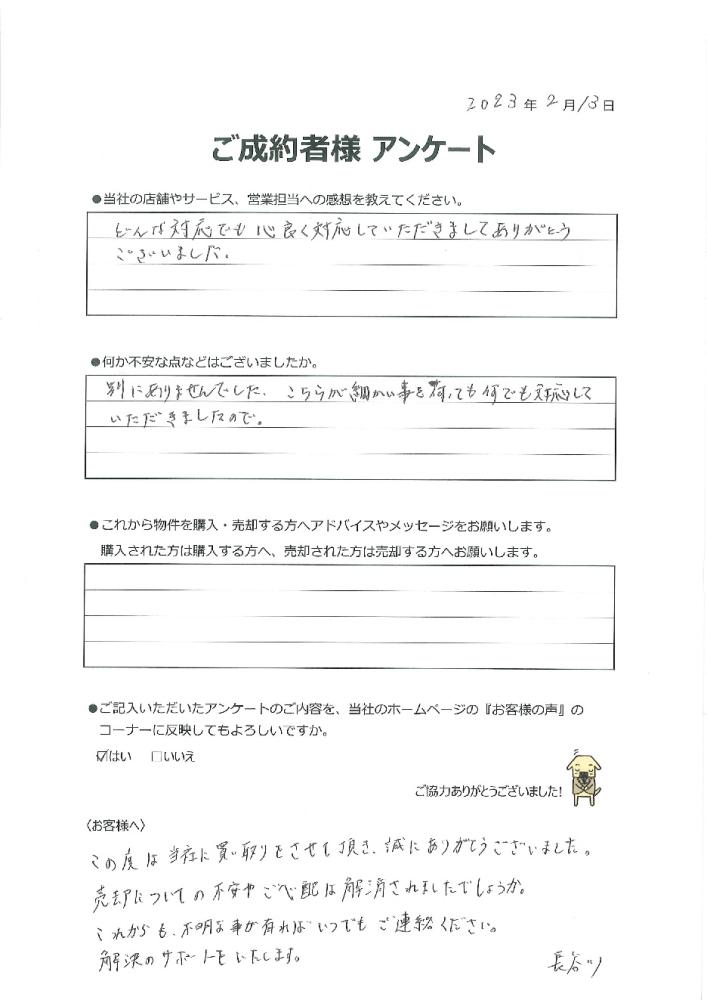 2023年2月13日
ご成約者様 アンケート
●当社の店舗やサービス、営業担当への感想を教えてください。
どんな対応でも心良く対応していただきましてありがとう
ございました。
●何か不安な点などはございましたか。
別にありませんでした、こちらが細かい事を言っても何でも対応して
いただきましたので。
●これから物件を購入・売却する方へアドバイスやメッセージをお願いします。
購入された方は購入する方へ、売却された方は売却する方へお願いします。
●ご記入いただいたアンケートのご内容を、当社のホームページの『お客様の声』の
コーナーに反映してもよろしいですか。
☑はい □いいえ
ご協力ありがとうございました!
〈お客様へ〉
この度は当社に買い取りをさせて頂き、誠にありがとうございました。
売却についての不安やご心配は解消されましたでしょうか。
これからも、不明な事が有ればいつでもご連絡ください。
解決のサポートをいたします。
長谷川